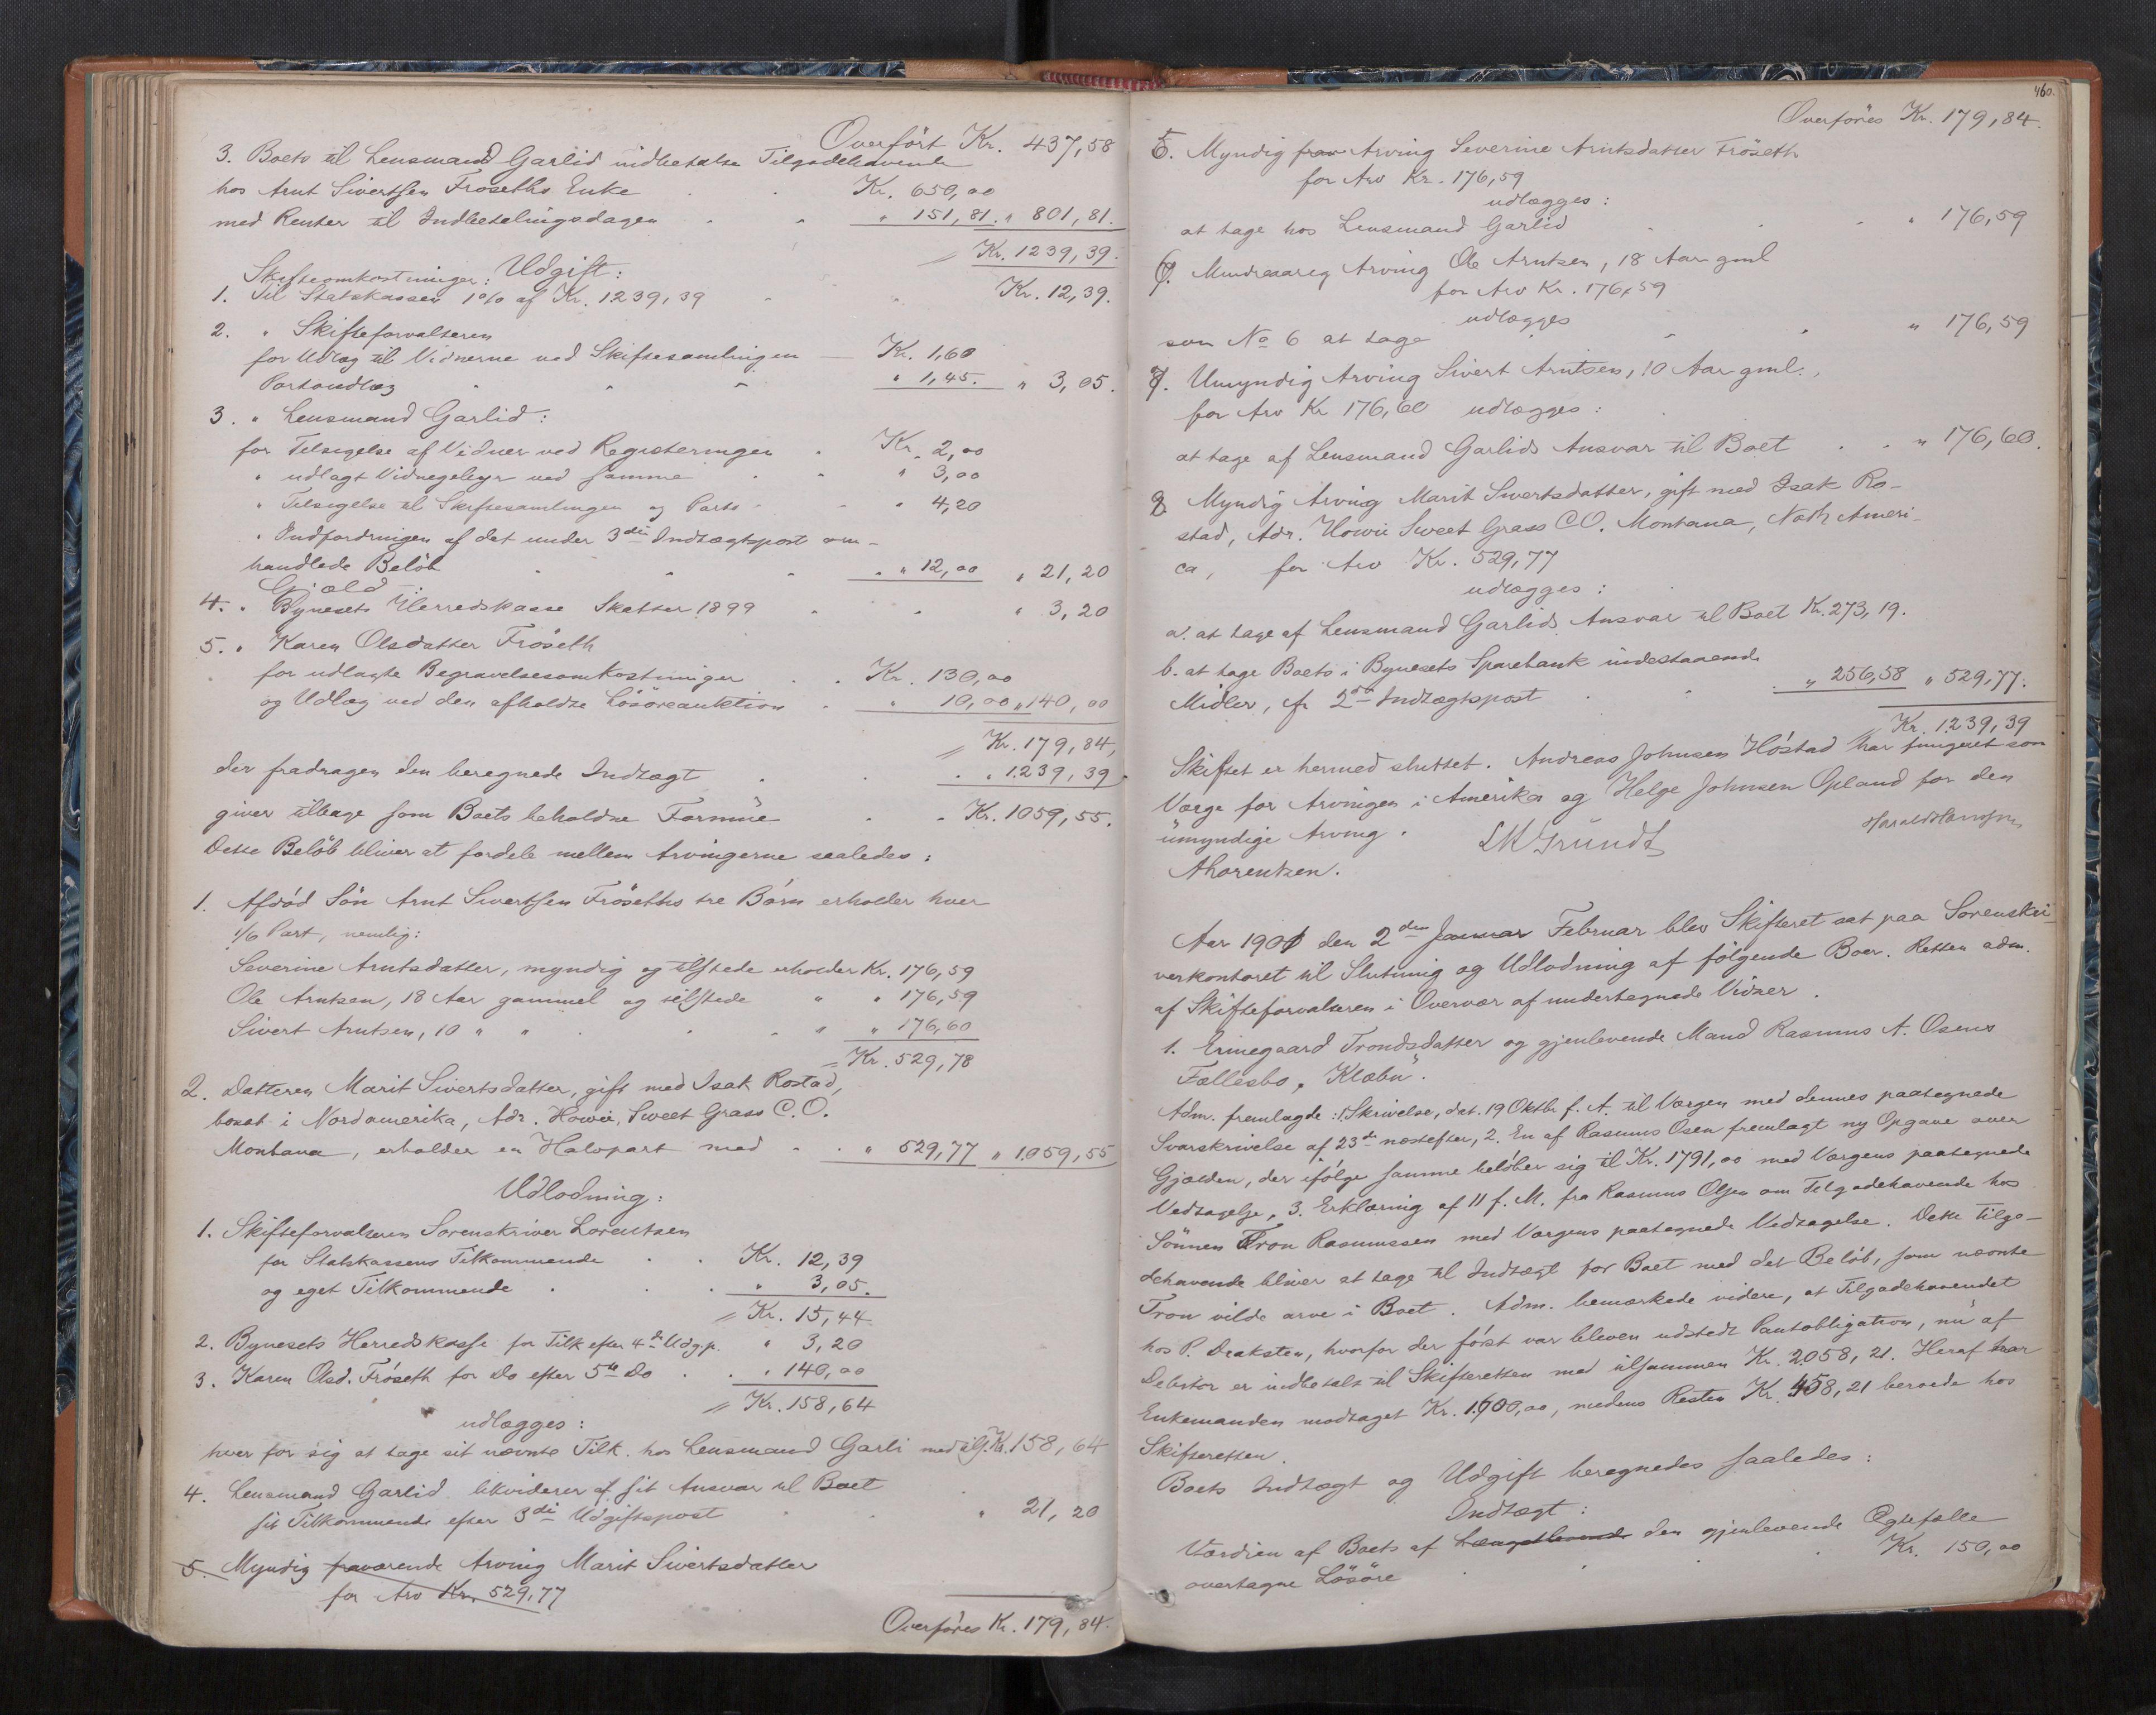 Overført Kr. 437,58
3. Boets til Lensmand Garlid indbetalte Tilgodehavende
hos Arnt Sivertsen Frøseths Enke Kr. 650,00
med Renter til Indbetalingsdagen " 151,81. " 801,81.
Kr. 1239,39.
Udgift:
Skifteomkostninger:
1. Til Statskassen 1% af Kr. 1239,39 Kr. 12,39.
2. " Skifteforvalteren
for Udlæg til Vidnerne ved Skiftesamlingen Kr. 1,60
Portoudlæg " 1,45. " 3,05.
3. " Lensmand Garlid:
for Tilsigelse af Vidner ved Registeringen Kr. 2,00
" udlagt Vidnegebyr ved samme " 3,00
" Tilsigelse til Skiftesamlingen og Porto " 4,20
" Indfordringen af det under 3die Indtægtspost om-
handlede Beløb " 12,00 " 21,20
Gjæld:
4. " Bynesets Herredskasse Skatter 1899 " 3,20
5. " Karen Olsdatter Frøseth
for udlagte Begravelsesomkostninger Kr. 130,00
og Udlæg ved den afholdte Løsøreauktion " 10,00 " 140,00
Kr. 179,84,
der fradragen den beregnede Indtægt " 1239,39.
giver tilbage som Boets beholdne Formue Kr. 1059,55.
Dette Beløb bliver at fordele mellem Arvingerne saaledes:
1. Afdød Søn Arnt Sivertsen Frøseths tre Børn erholder hver
1/6 Part, nemlig:
Severine Arntsdatter, myndig og tilstede erholder Kr. 176,59
Ole Arntsen, 18 Aar gammel og tilstede " " 176,59
Sivert Arntsen, 10 " " " " 176,60
Kr. 529,78
2. Datteren Marit Sivertsdatter, gift med Isak Rostad,
bosat i Nordamerika, Adr. Howie, Sweet Grass C.O.
Montana, erholder en Halvpart med " 529,77 " 1059,55
Udlodning:
1. Skifteforvalteren Sorenskriver Lorentzen
for Statskassens Tilkommende Kr. 12,39
og eget Tilkommende " 3,05.
Kr. 15,44
2. Bynesets Herredskasse for Tilk efter 4de Udg.p. " 3,20
3. Karen Olsd. Frøseth for Do efter 5te Do " 140,00
Kr. 158,64
udlægges:
hver for sig at tage sit nævnte Tilk. hos Lensmand Garli med tils. Kr. 158,64
4. Lensmand Garlid likviderer af sit Ansvar til Boet
sit Tilkommende efter 3die Udgiftspost " 21,20
5. Myndig fraværende Arving Marit Sivertsdatter
for Arv Kr. 529,77
Overføres Kr. 179,84.
460.
Overføres Kr. 179,84.
5. Myndig frav Arving Severine Arntsdatter Frøseth
for Arv Kr. 176,59
udlægges:
at tage hos Lensmand Garlid " 176,59
6. Mindreaarig Arving Ole Arntsen, 18 Aar gml
for Arv Kr. 176,59
udlægges
som No 6 at tage " 176,59
7. Umyndig Arving Sivert Arntsen, 10 Aar gml.,
for Arv Kr 176,60 udlægges:
at tage af Lensmand Garlids Ansvar til Boet " 176,60.
8 Myndig Arving Marit Sivertsdatter, gift med Isak Ro-
stad, Adr. Howie Sweet Grass C.O. Montana, Noth Ameri-
ca, for Arv Kr. 529,77
udlægges:
a. at tage af Lensmand Garlids Ansvar til Boet Kr. 273,19.
b. at tage Boets i Bynesets Sparebank indestaaende
Midler, cfr 2den Indtægtspost " 256,58 " 529,77.
Kr. 1239,39
Skiftet er hermed sluttet. Andreas Johnsen Høstad har fungeret som
Værge for Arvingen i Amerika og Helge Johnsen Opland for den
umyndige Arving.
SKGrundt
Alorentzen.
Aar 1901 den 2den Januar Februar blev Skifteret sat paa Sorenskri-
verkontoret til Slutning og Udlodning af følgende Boer. Retten adm.
af Skifteforvalteren i Overvær af undertegnede Vidner.
1. Ermegaard Trondsdatter og gjenlevende Mand Rasmus A. Osens
Fællesbo, "Klæbu".
Adm. fremlagde: 1. Skrivelse, dat. 19 Oktbr f. A. til Værgen med dennes paategnede
Svarskrivelse af 23de næstefter, 2. En af Rasmus Osen fremlagt ny Opgave over
Gjælden, der ifølge samme beløber sig til Kr. 1791,00 med Værgens paategnede
Vedtagelse, 3. Erklæring af 11 f. M. fra Rasmus Olsen om Tilgodehavende hos
Sønnen Tron Rasmussen med Værgens paategnede Vedtagelse. Dette Tilgo-
dehavende bliver at tage til Indtægt for Boet med det Beløb, som nævnte
Tron vilde arve i Boet. Adm. bemærkede videre, at Tilgodehavendet
hos P. Draksten, hvorfor der først var bleven udstedt Pantobligation, nu af
Debitor er indbetalt til Skifteretten med tilsammen Kr. 2058,21. Heraf har
Enkemanden modtaget Kr. 1600,00, medens Resten Kr. 458,21 beroede hos
Skifteretten.
Boets Indtægt og Udgift beregnedes saaledes:
Indtægt:
Værdien af Boets af Længstlevende den gjenlevende Ægtefælle
overtagne Løsøre Kr. 150,00